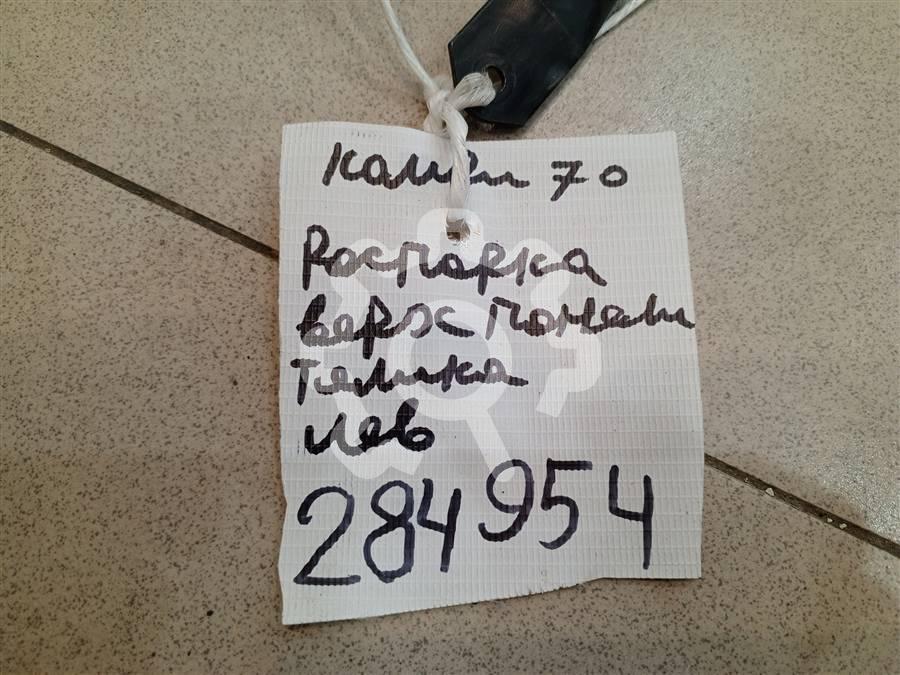 Камри 70
Роспорка
верх понели
Телика
лев
284954